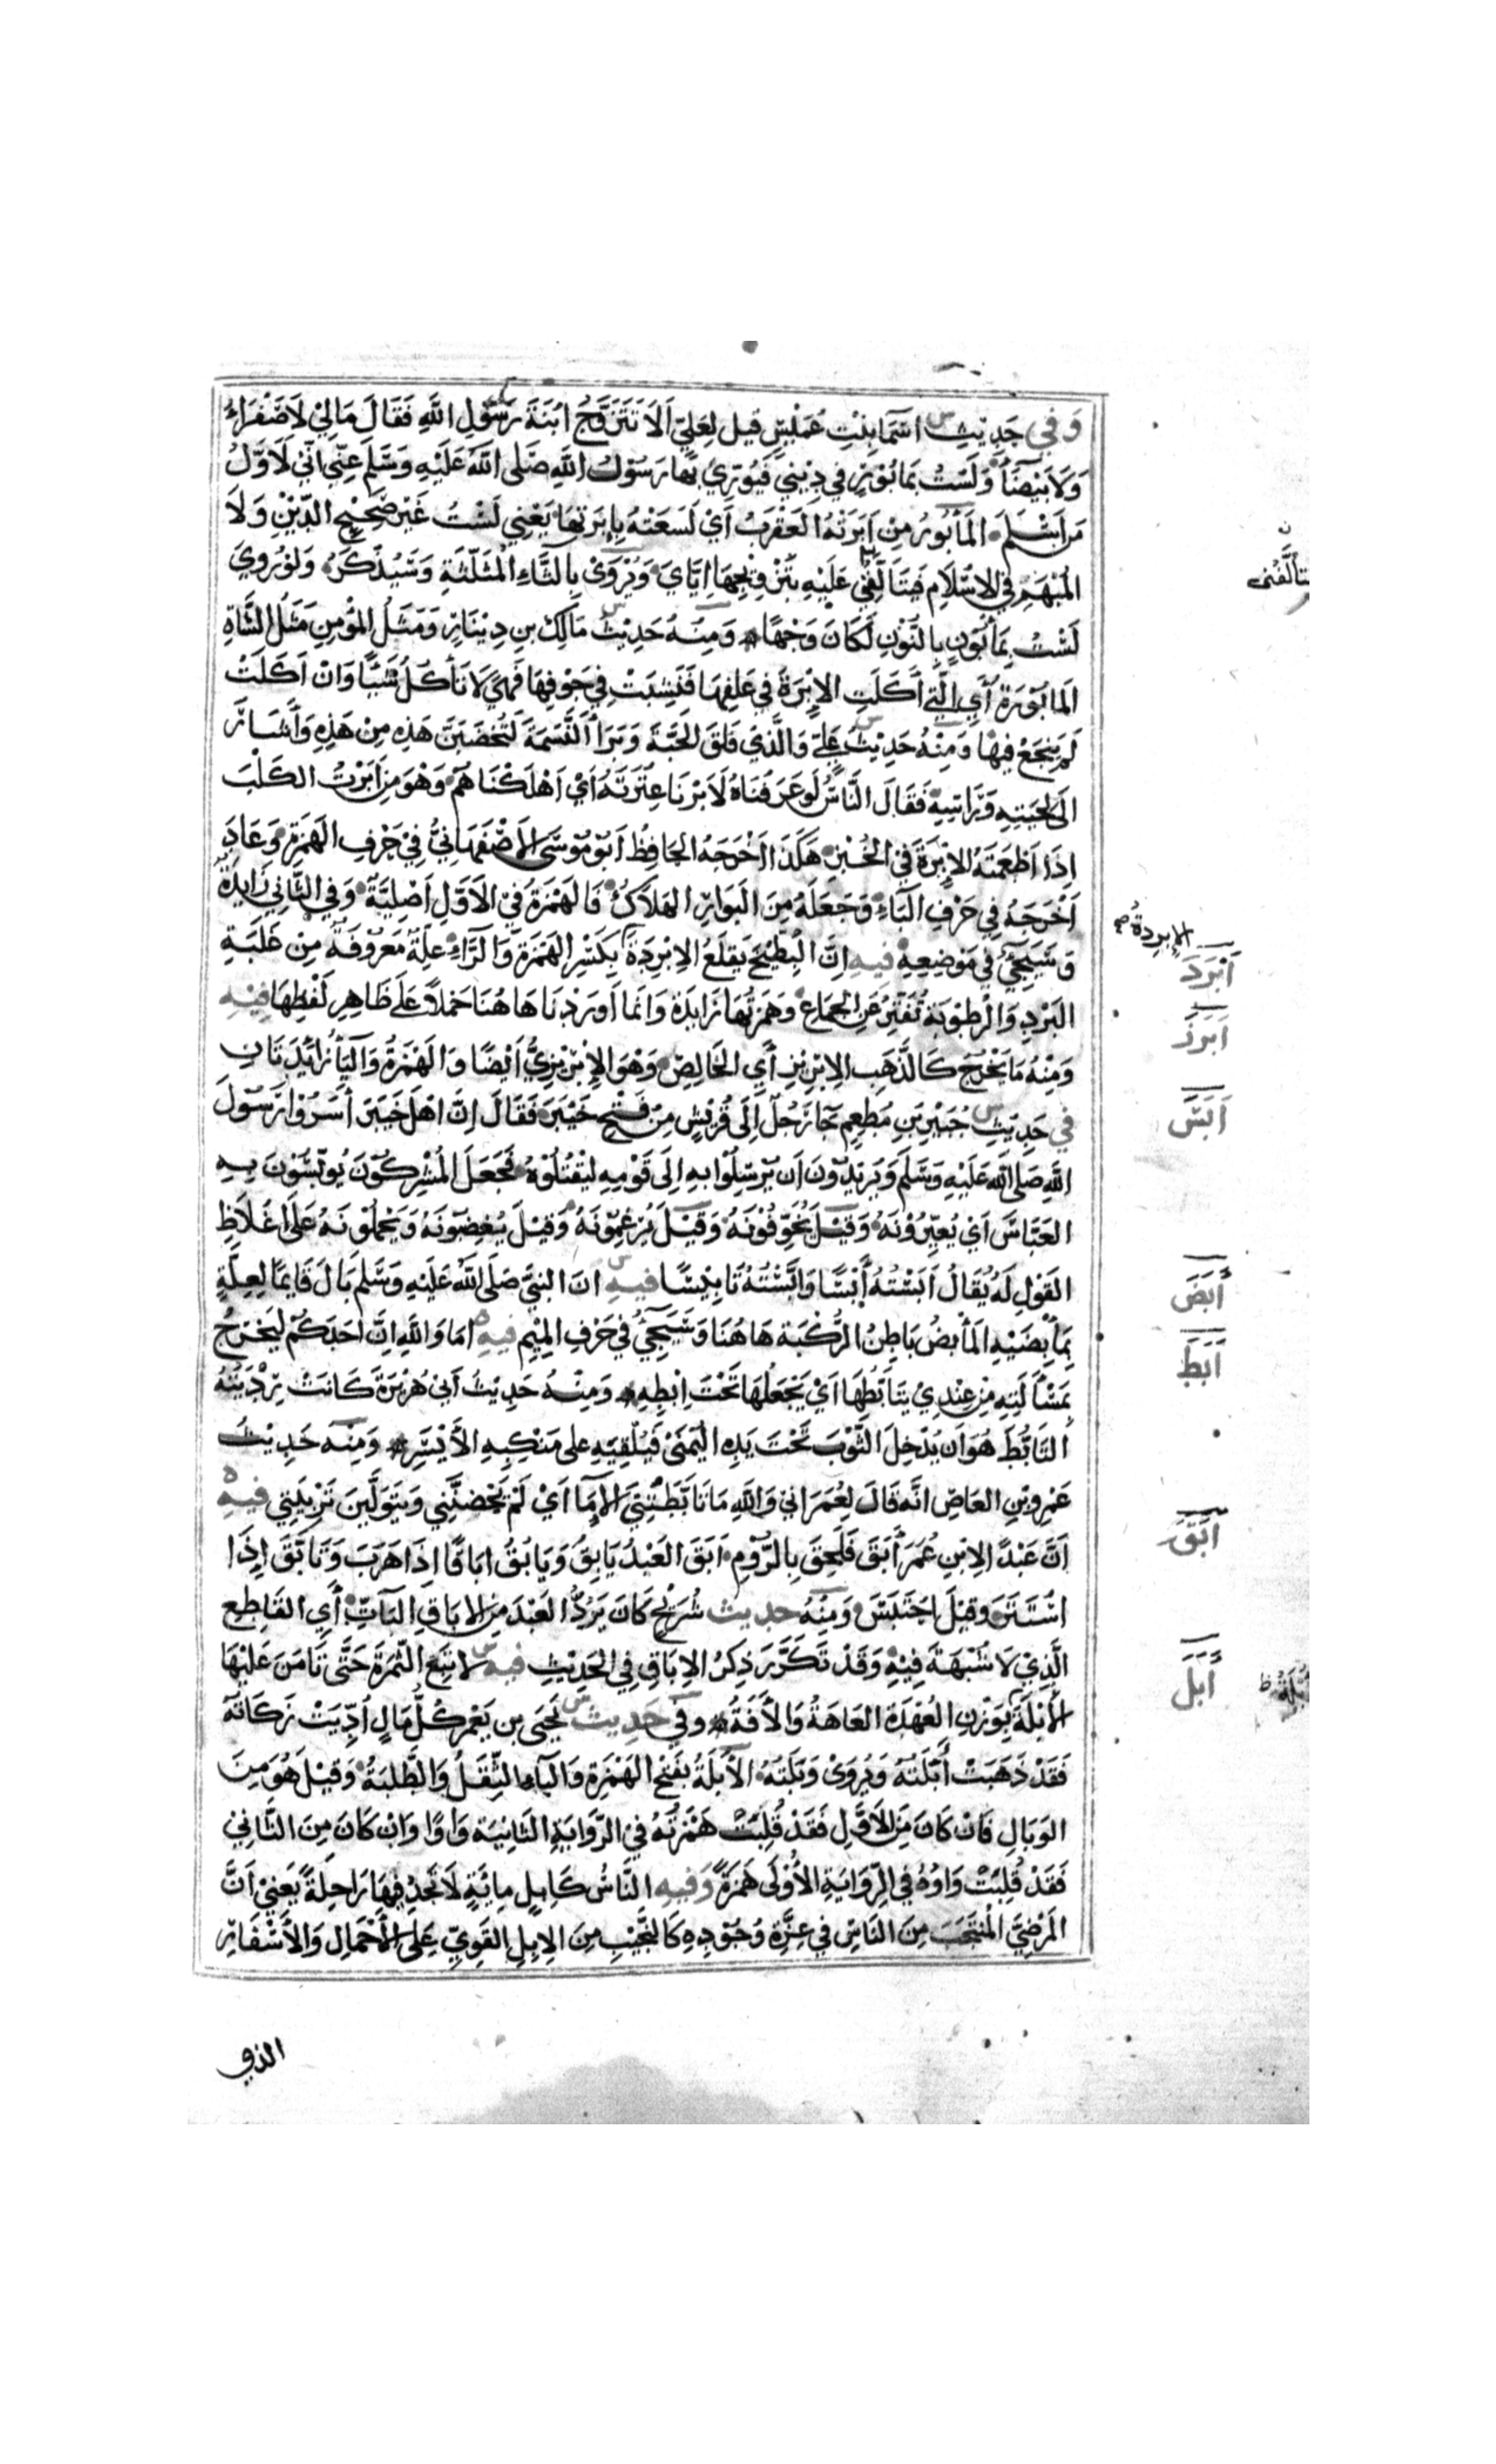 وَفِي حَدِيثِ اسْمَا بِنْتِ عُمَيْسٍ قيل لِعَلِيّ اَلَا تَتَزَوَّجُ ابْنَةَ رَسُوْلِ اللَّهِ فَقَالَ مَا لِيْ لَا صَفْرَاءُ
وَلَا بَيْضَاُ وَلَسْتُ بِمَابُوْرٍ فِي دِيْنِي فَيُوَرِّيْ بِهَا رَسُوْلُ اللَّهِ صَلى اللَّهُ عَلَيْهِ وَسَلَّمَ عَنِّي اِنِّيْ لَاَوَّلُ
مَن اَسْلَمَ المَأْبُورُ مِنْ اَبَرَتْهُ العَقْرَبُ اَيْ لَسَعَتْهُ بِاِبْرَتِهَا يَعْنِي لَسْتُ غَيْرَ صَحِيْحِ الدِّيْنِ وَلَا
المُتْهَمِ فِي الاِسْلَامِ فَيَتَأَلَّفُنِي عَلَيْهِ بِتَزْوِيْجِهَا اِيَّايَ وَيُرْوَىْ بِالثَّاءِ المُثَلَّثَةِ وَسَيُذْكَرُ وَلَوْ رُوِيَ
لَسْتُ بِمَأْبُونٍ بِالنُّوْنِ لَكَانَ وَجْهًا وَمِنْهُ حَدِيْثُ مَالِكِ بنِ دِيْنَارٍ وَمَثَلُ المُؤْمِنِ مَثَلُ الشَّاةِ
المَابُوْرَةِ أَيِ الَّتِي أَكَلَتِ الاِبْرَةَ فِي عَلَفِهَا فَنَشِبَتْ فِي جَوْفِهَا فَهِيَ لَا تَأْكُلُ شَيْئًا وَاِنْ اَكَلَتْ
لَمْ يَنْجَعْ فِيهَا وَمِنْهُ حَدِيْثُ عَلِيّ وَالَّذِي فَلَقَ الحَبَّةَ وَبَرَأَ النَّسَمَةَ لَتُخْضَبَنَّ هَذِهِ مِنْ هَذِهِ وَأَشَارَ
اِلَى لِحْيَتِهِ وَرَاسِهِ فَقَالَ النَّاسُ لَو عَرَفْنَاهُ لَاَبَرْنَا عِتْرَتَهُ اَيْ اَهْلَكْنَاهُمْ وَهْوَ مِنْ اَبَرْتُ الكَلْبَ
اِذَا اَطْعَمْتَهُ الاِبْرَةَ فِي الخُبْزِ هَكَذَا اَخْرَجَهُ الحَافِظُ اَبُوْ مُوْسَى الاَصْفَهَانِيُّ فِيْ حَرْفِ الهَمْزَةِ وَعَادَ
اَخْرَجَهُ فِي حَرْفِ البَاءِ وَجَعَلَهُ مِنَ البَوَارِ الهَلَاكُ فَالهَمْزَةُ فِي الاَوَّلِ اَصْلِيَّةٌ وَفِي الثَّانِي زَايِدَةٌ
وَسَيَجِيْءُ فِي مَوْضِعِهِ فِيهِ اِنَّ البِطِّيْخَ يَقْلَعُ الاِبْرِدَةَ بِكَسْرِ الهَمْزَةِ وَالرَّاءِ عِلَّةٌ مَعْرُوْفَةٌ مِنْ غَلَبَةِ
البَرْدِ وَالرُّطُوْبَةِ تُفَتِّرُ عَنِ الجِمَاعِ وَهَمْزَتُهَا زَايِدَةٌ وَاِنَّمَا اَوْرَدْنَاهَا هُنَا حَمْلًا عَلَى ظَاهِرِ لَفْظِهَا فِيْهِ
وَمِنْهُ مَا يَخْرُجُ كَالذَّهَبِ الاِبْرِيْزِ أَيِ الخَالِصِ وَهْوَ الاِبْرِيْزِيُّ اَيْضًا وَالهَمْزَةُ وَاليَاُ زَائِدَتَانِ
فِي حَدِيْثِ جُبَيْرِ بْنِ مُطْعِمٍ جَا رَجُلٌ اِلَى قُرَيْشٍ مِنْ فَتْحِ خَيْبَرَ فَقَالَ اِنَّ اَهْلَ خَيْبَرَ اَسَرُوْا رَسُوْلَ
اللَّهِ صَلى اللَّهُ عَلَيْهِ وَسَلَّمَ وَيُرِيْدُوْنَ اَن يُرْسِلُوْا بِهِ اِلَى قَوْمِهِ لِيَقْتُلُوْهُ فَجَعَلَ المُشْرِكُوْنَ يُوَبِّسُوْنَ بِهِ
العَبَّاسَ اَيْ يُعَيِّرُوْنَهُ وَقِيْلَ يُخَوِّفُوْنَهُ وَقِيْلَ يُرْغِمُوْنَهُ وَقِيْلَ يُغْضِبُوْنَهُ وَيَحْمِلُوْنَهُ عَلَى اِغْلَاظِ
القَوْلِ لَهُ يُقَالُ اَبَسْتُهُ أَبْسًا وَاَبَّسْتُهُ تَابِيْسًا فِيهِ اَنَّ النبيَّ صَلَى اللَّهُ عَلَيْهِ وَسَلَّمَ بَالَ قَايِمًا لِعِلَّةٍ
بِمَأْبِضَيْهِ المَأْبِضُ بَاطِنُ الرُّكْبَةِ هَاهُنَا وَسَيَجِيْءُ فِي حَرْفِ المِيْمِ فِيهِ امَا وَاللَّهِ اِنَّ اَحَدَكُمْ لَيَخْرُجُ
بِمَسْأَلَتِهِ مِنْ عِنْدِيْ يَتَأَبَّطُهَا اَيْ يَجْعَلُهَا تَحْتَ اِبْطِهِ وَمِنْهُ حَدِيْثُ اَبِيْ هُرَيْرَةَ كَانَتْ رِدْيَتُهُ
التَّأَبُّطَ هُوَ اَن يُدْخِلَ الثَّوْبَ تَحْتَ يَدِهِ اليُمْنَىْ فَيُلْقِيَهِ عَلى مَنْكِبِهِ الأَيْسَرِ وَمِنْهُ حَدِيْثُ
عَمْرِو بْنِ العَاصِ اَنَّهُ قَالَ لِعُمَرَ اِنِّي وَاللَّهِ مَا تَأَبَّطَتْنِي الاِمَا اَيْ لَمْ يَحْضِنَّنِي وَيَتَوَلَّيْنَ تَرْبِيَتِي فِيهِ
اَنَّ عَبْدًا لِابْنِ عُمَرَ أَبَقَ فَلَحِقَ بِالرُّوْمِ اَبَقَ العَبْدُ يَابِقُ وَيَابُقُ اِبَاقًا اِذَا هَرَبَ وَتَأَبَّقَ اِذَا
اسْتَتَرَ وَقِيْلَ احْتَبَسَ وَمِنْهُ حديث شُرَيْحٍ كَانَ يَرُدُّ العَبْدَ مِنَ الاِبَاقِ البَاتِّ أَيِ القَاطِعِ
الَّذِي لَا شُبْهَةَ فِيْهِ وَقَدْ تَكَرَّرَ ذِكْرُ الاِبَاقِ فِي الحَدِيْثِ فِيهِ لَا تَبِعِ الثَّمَرَةَ حَتَّى تَأْمَنَ عَلَيْهَا
الأُبْلَةَ بِوَزْنِ العُهْدَةِ العَاهَةُ وَالأَفَةُ وفِي حَدِيث يَحْيَى بن يَعْمَر كُلُّ مَالٍ اُدِّيَتْ زَكَاتُهُ
فَقَدْ ذَهَبَتْ أَبَلَتُهُ وَيُرْوَىْ وَبَلَتُهُ الأَبَلَةُ بِفَتْحِ الهَمْزَةِ وَالبَاءِ الثِّقَلُ وَالطَّلِبَةُ وَقِيْلَ هُوَ مِنَ
الوَبَالِ فَاِنْ كَانَ مِنَ الاَوَّلِ فَقَدْ قُلِبَتْ هَمْزَتُهُ فِي الرِّوَايَةِ الثَّانِيَةِ وَاوًا وَاِنْ كَانَ مِنَ الثَّانِيْ
فَقَدْ قُلِبَتْ وَاوُهُ فِي الرِّوَايَةِ الأُوْلَى هَمْزَةً وَفِيهِ النَّاسُ كَاِبِلٍ مِائَةٍ لَا تَجِدُ فِيْهَا رَاحِلَةً يَعْنِيْ اَنَّ
المَرْضِيَّ المُنْتَجَبَ مِنَ النَّاسِ فِي عِزَّةِ وُجُوْدِهِ كَالنَّجِيْبِ مِنَ الاِبِلِ القَوِيِّ عَلَى الاَحْمَالِ وَالأَسْفَارِ
الذي
يتألَّفُنى
الإبردةُ
اَبْرَدَ
اَبرَزَ
اَبَسَ
أَبَضَ
اَبَطَ
اَبَقَ
أَبَلَ